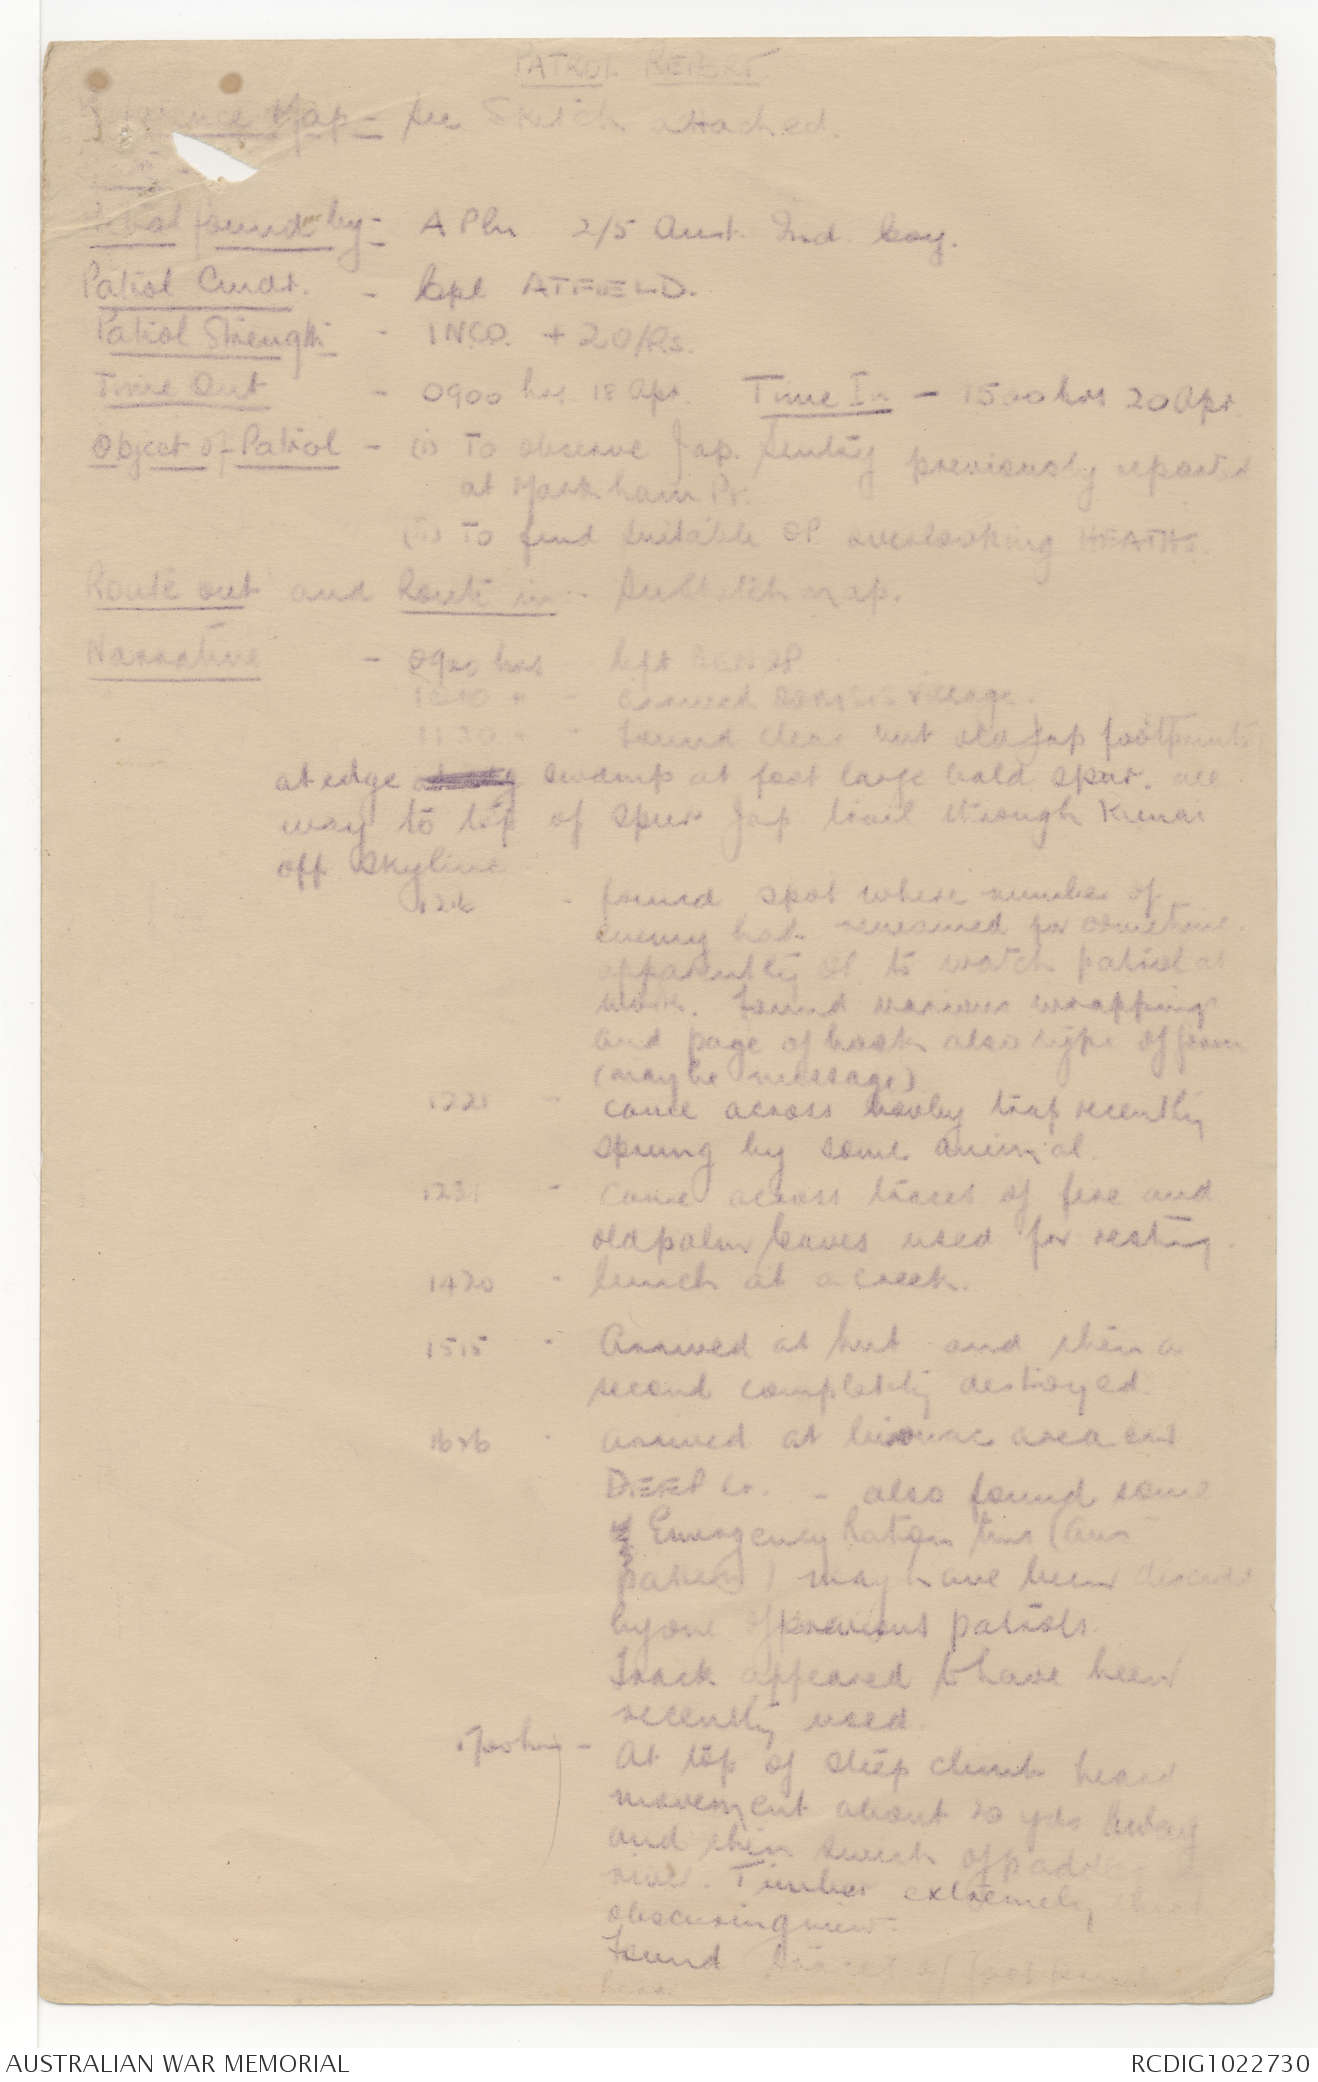 PATROL REPORT
Reference Map - See Sketch attached.
Patrol found by - A Pln 2/5 Aust. Ind. Coy.
Patrol Cmdr. - Cpl ATFIELD.
Patrol Strength - 1 NCO. + 2 O/Rs.
Time Out - 0900 hrs 18 Apr. Time In - 1500 hrs 20 Apr.
Object of Patrol - (i) To observe Jap. Sentry previously reported
at Markham Pt.
(ii) To find suitable OP overlooking HEATHS.
Route out and Route in - See Sketch map.
Narrative - 0900 hrs left OP
1010 " - arrived village.
1130 " - Found clear but old Jap footprints
at edge swamp at foot large bald spur. all
way to top of spur Jap trail through Kunai
off skyline
- found spot where number of
enemy had remained for sometime.
apparently OP. to watch patrol at
work. Found various wrappings
and page of book also type of form
(maybe message)
1221 - came across booby trap recently
sprung by some animal.
1231 - came across traces of fire and
old palm leaves used for resting.
1420 - lunch at a creek.
1515 - Arrived at hut and then a
second completely destroyed.
1626 - arrived at bivouac area
DEEP Cr. - also found some
Emergency Ration tins (Aus
pattern) may have been
by one of previous patrols.
Track appeared to have been
recently used.
- At top of steep climb heard
movement about 20 yds away
and then
Timber extremely
obscuring view.
Found traces of
here.
AUSTRALIAN WAR MEMORIAL
RCDIG1022730